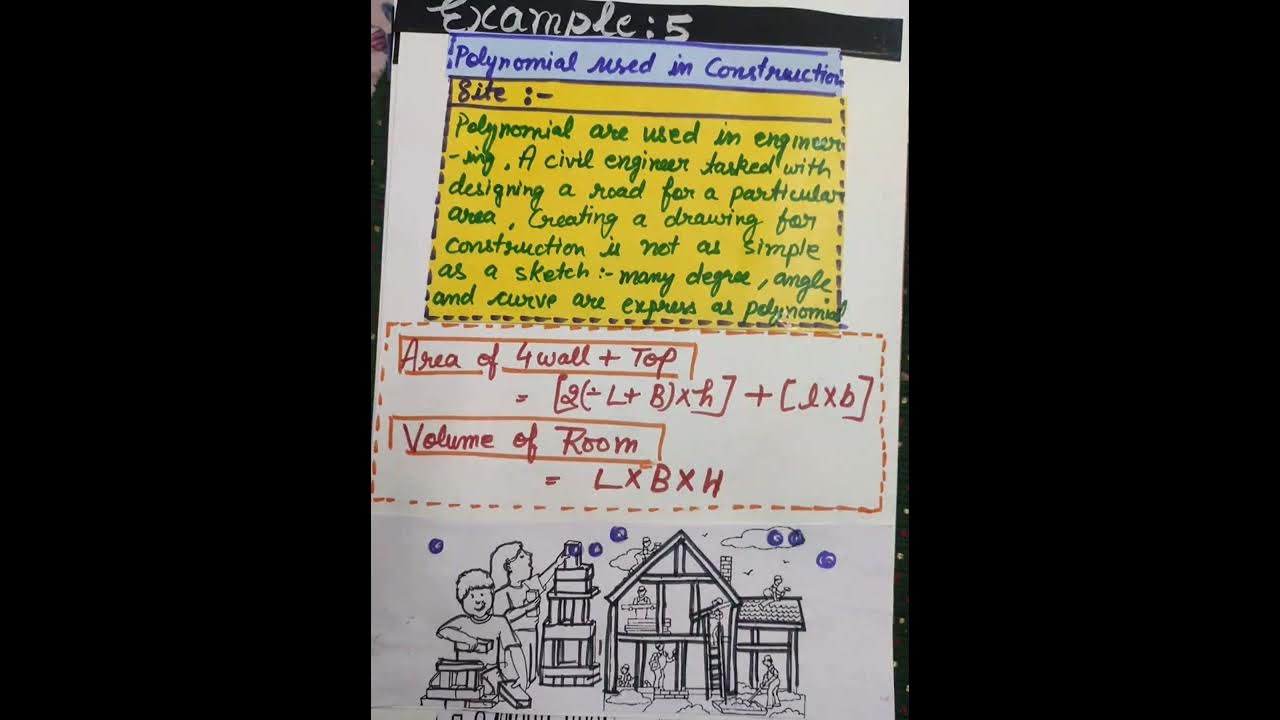 Example: 5
Polynomial used in Construction
Site :-
Polynomial are used in engineer
-ing. A civil engineer tasked with
designing a road for a particular
area. Creating a drawing for
construction is not as simple
as a sketch :- many degree, angle
and curve are express as polynomial
Area of 4 wall + Top
= [2(÷L+B)×h] + [l×b]
Volume of Room
= L×B×H